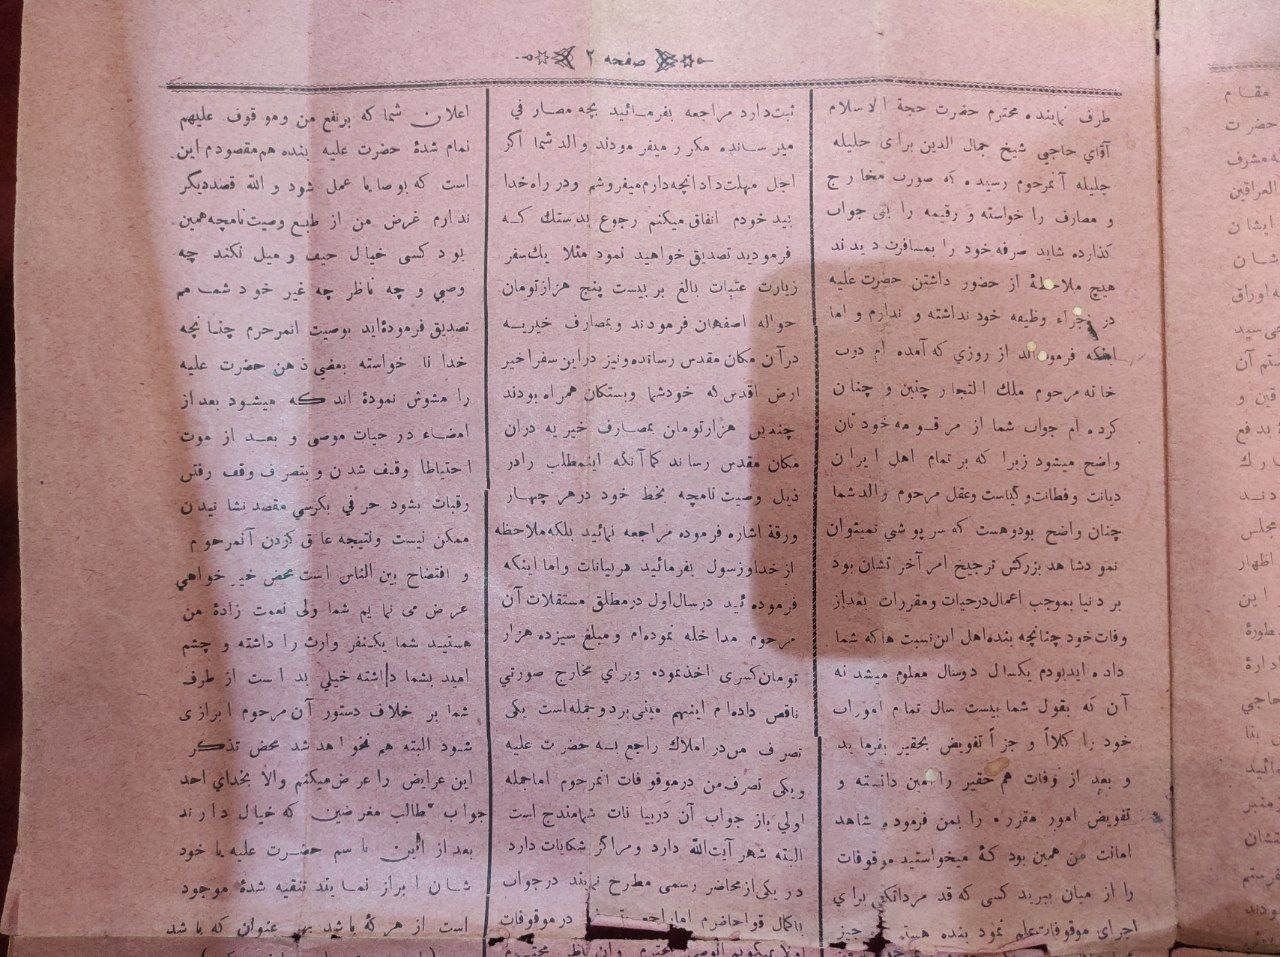 صفحه ۲
طرف نماینده محترم حضرت حجة الاسلام
آقاي حاجي شیخ جمال الدین برای حلیله
جلیله آنمرحوم رسیده که صورت مخارج
و مصارف را خواسته و رقیمه را بی جواب
گذارده شاید صرفه خود را بمسافرت دیدند
هیچ ملاحظهٔ از حضور داشتن حضرت علیه
در اجراء وظیفه خود نداشته و ندارم و اما
اینکه فرموده‌اند از روزي که آمده ام درب
خانه مرحوم ملك التجار چنین و چنان
کرده ام جواب شما از مرقومه خودتان
واضح میشود زیرا که بر تمام اهل ایران
دیانت و فطانت و کیاست و عقل مرحوم والد شما
چنان واضح بود و هست که سر پوشي نمیتوان
نمود شاهد بزرگش ترجیح امر آخرتشان بود
بر دنیا بموجب اعمال در حیات و مقررات بعد از
وفات خود چنانچه بنده اهل این نسبت ها که شما
داده اید بودم یکسال دوسال معلوم میشد نه
آن که بقول شما بیست سال تمام امورات
خود را کلاً و جزأ تفویض بحقیر بفرماید
و بعد از وفات هم حقیر را امین دانسته و
تفویض امور مقرره را بمن فرموده شاهد
امانت من همین بود که میخواستید موقوفات
را از میان ببرید کسی که قد مردانگی براي
اجرای موقوفات علم نمود بنده هستم چیز
ثبت دارد مراجعه بفرمائید بچه مصارفي
میرسانده مکرر میفرمودند والد شما اگر
اجل مهلت داد انچه دارم میفروشم و در راه خدا
بید خودم انفاق میکنم رجوع بدستك که
فرمودید تصدیق خواهید نمود مثلا یك سفر
زیارت عتبات بالغ بر بیست پنج هزار تومان
حواله اصفهان فرمودند و بمصارف خیریه
در آن مکان مقدس رسانده و نیز در این سفر اخیر
ارض اقدس که خود شما و بستگان همراه بودند
چندین هزار تومان بمصارف خیریه در ان
مکان مقدس رساند کما آنکه اینمطلب را در
ذیل وصیت نامچه بخط خود در هر چهار
ورقهٔ اشاره فرموده مراجعه نمائید بلکه ملاحظه
از خدا و رسول بفرمائید در بیانات و اما اینکه
فرموده ئید در سال اول در مطلق مستقلات آن
مرحوم مداخله نموده‌ام و مبلغ سیزده هزار
تومان کسری اخذ نموده و براي مخارج صورتي
ناقص داده‌ام اینهم مبنی بر دو جمله است یکی
تصرف من در املاك راجع به حضرت علیه
و یکی تصرف من در موقوفات انمرحوم اما جمله
اولي باز جواب آن در بیانات شما مندرج است
البته شهر آیت‌الله دارد و مراگر شکایات دارد
در یکی از محاضر رسمی مطرح نمایند در جواب
باکمال قوا حاضرم اما راجع در موقوفات
اعلان شما که بر نفع من و موقوف علیهم
تمام شدهٔ حضرت علیه بنده هم مقصودم این
است که بوصایا عمل شود و الله قصد دیگر
ندارم غرض من از طبع وصیت نامچه همین
بود کسی خیال حیف و میل نکند چه
وصي و چه ناظر چه غیر خود شما هم
تصدیق فرمودهٔ اید بوصیت انمرحوم چنانچه
خدا نا خواسته بعضی ذهن حضرت علیه
را مشوش نمودهٔ اند که میشود بعد از
امضاء در حیات موصی و بعد از موت
احتیاطا وقیف شدن و بتصرف وقف رفتن
رقبات بشود حرفي بکرسي مقصد نشانیدن
ممکن نیست و نتیجه عاق کردن آنمرحوم
و افتضاح بین الناس است محض خیر خواهي
عرض می نمایم شما ولی نعمت زادهٔ من
هستید شما یکنفر وارث را داشته و چشم
امید بشما داشته خیلي بد است از طرف
شما بر خلاف دستور آن مرحوم ابرازی
شود البته هم نخواهد شد محض تذکر
این عرایض را عرض میکنم والا بخدای احد
جواب مطالب مغرضین که خیال دارند
بعد از این باسم حضرت علیه یا خود
شان ابراز نمایند تنقیه شدهٔ موجود
است از هر که باشد بهر عنوان که باشد